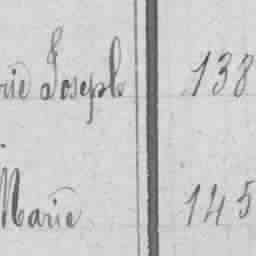 rie Joseph 138
Marie 145